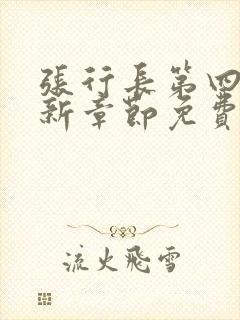 張行長第四
新章節免費
流火飛雪